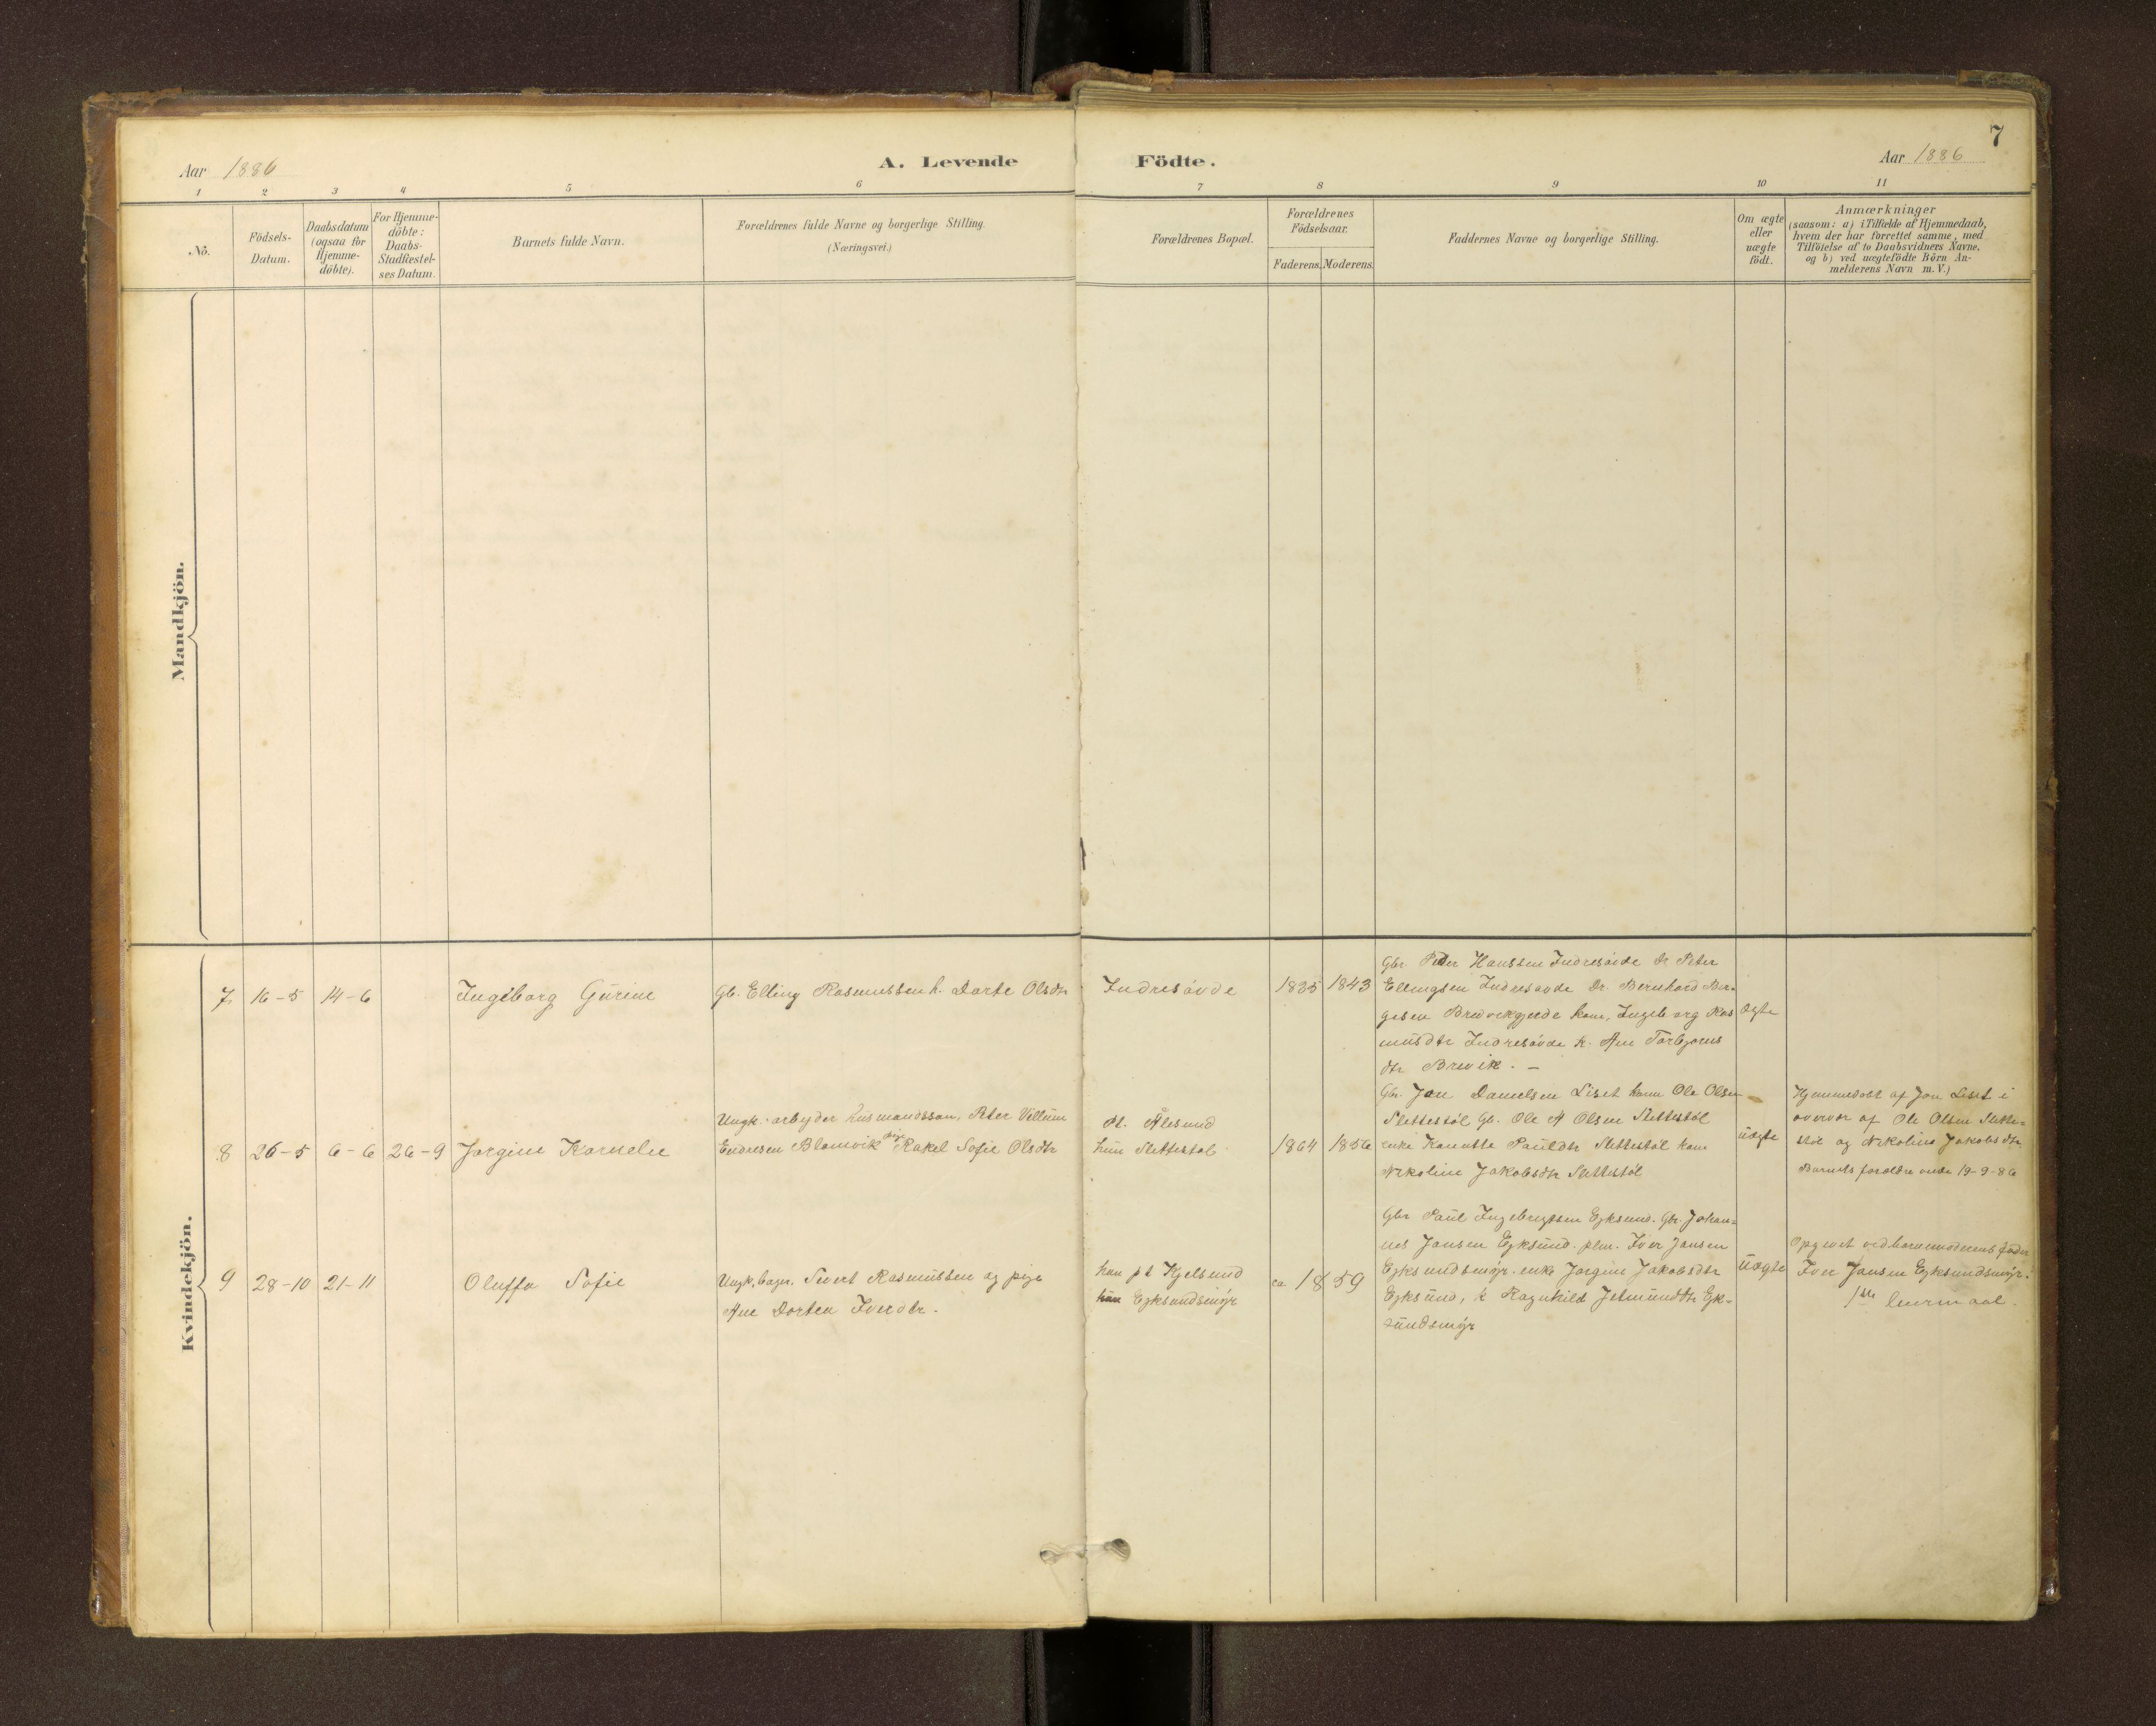 7
Aar 1886
A. Levende
Födte.
Aar 1886
1 2 3 4 5 6 7 8 9 10 11
No.
Födsels-
Datum.
Daabsdatum
(ogsaa för
Hjemme-
döbte).
For Hjemme-
döbte:
Daabs-
Stadfæstel-
ses Datum.
Barnets fulde Navn.
Forældrenes fulde Navne og borgerlige Stilling.
(Næringsvei.)
Forældrenes Bopæl.
Forældrenes
Födselsaar.
Faderens. Moderens.
Faddernes Navne og borgerlige Stilling.
Om ægte
eller
uægte
födt.
Anmærkninger
(saasom: a) i Tilfælde af Hjemmedaab,
hvem der har forrettet samme, med
Tilföielse af to Daabsvidners Navne,
og b) ved uægtefödte Börn An-
melderens Navn m. V.)
Mandkjön.
Kvindekjön.
7 16-5 14-6
Ingeborg Gurine
Gb. Elling Rasmussen h. Dorte Olsdtr
Indresövde
1835 1843
Gbr. Peder Hanssen Indresövde Dr Peter
Ellingsen Indresövde Dr. Bernhard Bør-
gesen Brevikgjerde kone, Ingeborg Ras
musdtr Indresövde k. Ane Torbjorns
dtr Brevik. -
Ægte
8 26-5 6-6 26-9
Jorgine Kornelie
Ungk. arbeider husmandsson, Peter Villum
Endresen Blomvik pig Rakel Sofie Olsdtr
Pt. Ålesund
hun Slettestöl
1864 1856
Gbr. Jon Danielsen Liset kaun Ole Olsen
Slettestöl Gb. Ole A Olsen Slettestöl
enke Kanutte Paulsdtr Slettestöl kone
Nikoline Jakobsdtr Slettestöl
uægte
Hjemmedöbt af Jon Liset i
overvær af Ole Olsen Slette-
stöl og Nikoline Jakobsdtr.
Barnets forældre 19-9-86
9 28-10 21-11
Oluffa Sofie
Ungk, bager, Sivert Rasmussen og pige
Ane Dorthea Iversdtr.
han pt Kjelsund
hun Ejksundsmýr
ca. 1859
Gbr Paul Ingebrigtsen Ejksund. Gbr. Johan-
nes Jansen Ejksund. plm. Iver Jansen
Ejksundsmýr. enke Jorgine Jakobsdtr
Ejksund, k Ragnhild Jetmundsdtr Ejk-
sundsmýr
Uægte
Opgivet ved barnemoderens fader
Iver Jansen Ejksundsmýr.
1ste leiermaal.